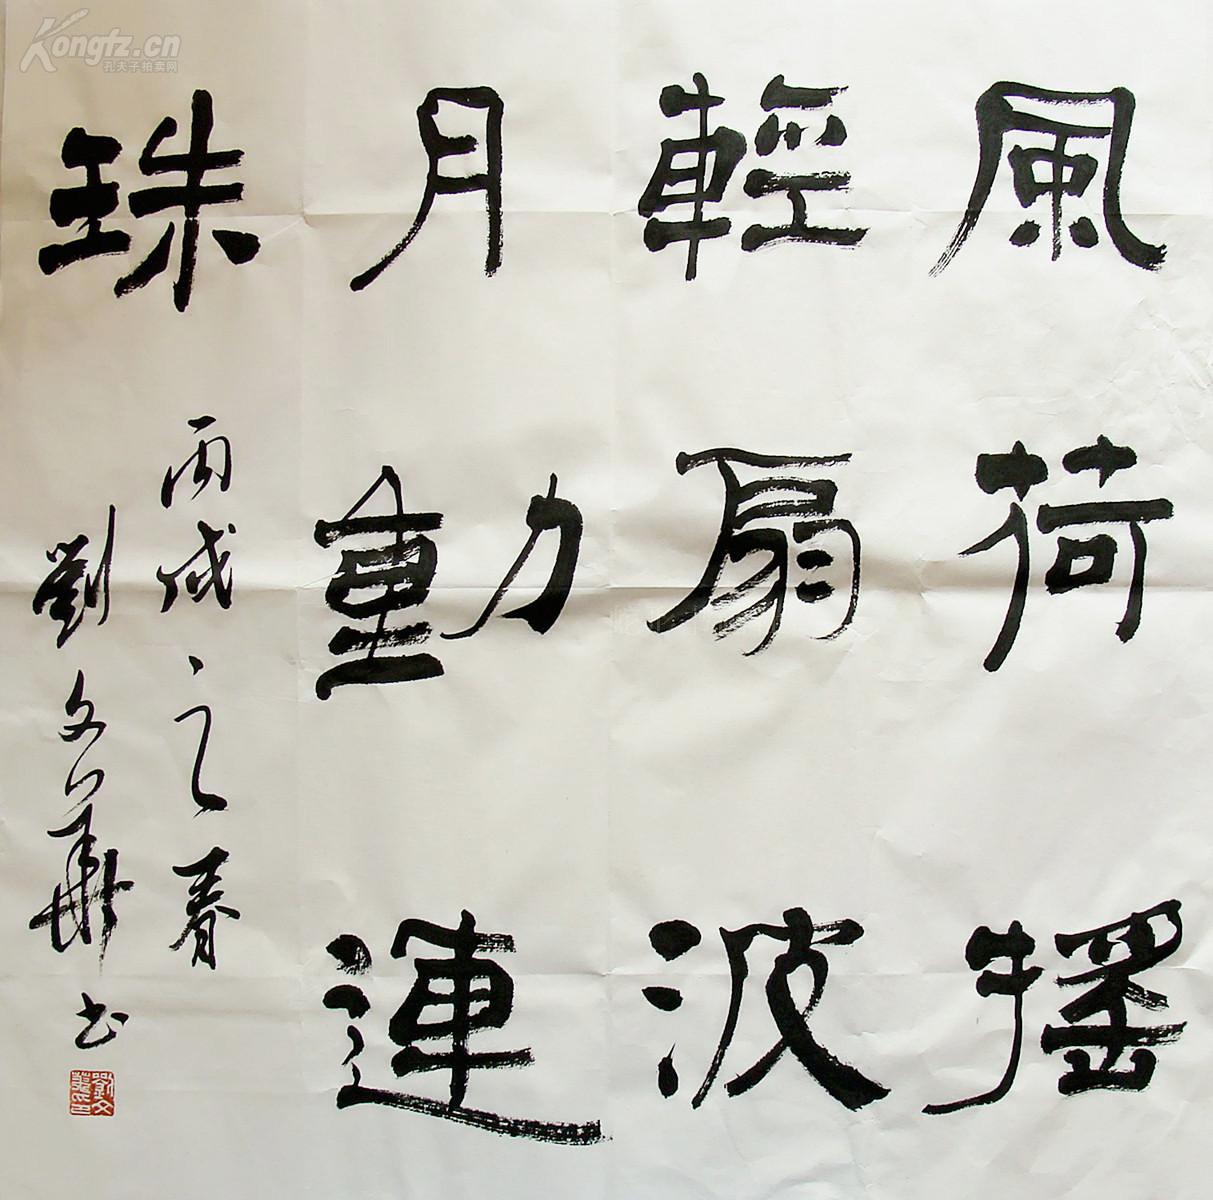 風荷搖
輕扇波
月動連
珠
丙戌之春
劉文華书
劉文華印
Kongfz.cn
孔夫子拍卖网